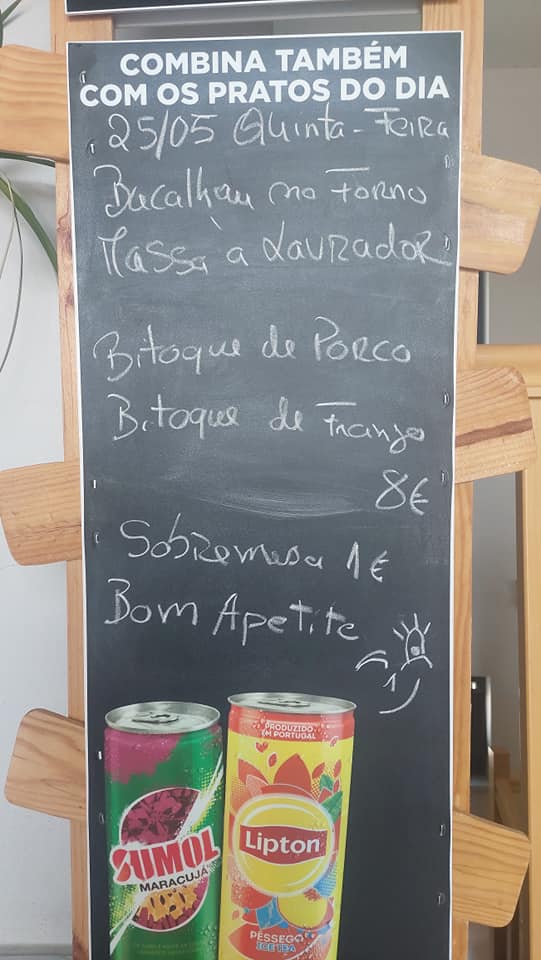 COMBINA TAMBÉM
COM OS PRATOS DO DIA
25/05 Quinta-Feira
Bacalhau no Forno
Massa à Lavrador
Bitoque de Porco
Bitoque de Frango
8€
Sobremesa 1€
Bom Apetite
SUMOL
MARACUJÁ
PRODUZIDO
EM PORTUGAL
Lipton
PÊSSEGO
ICE TEA